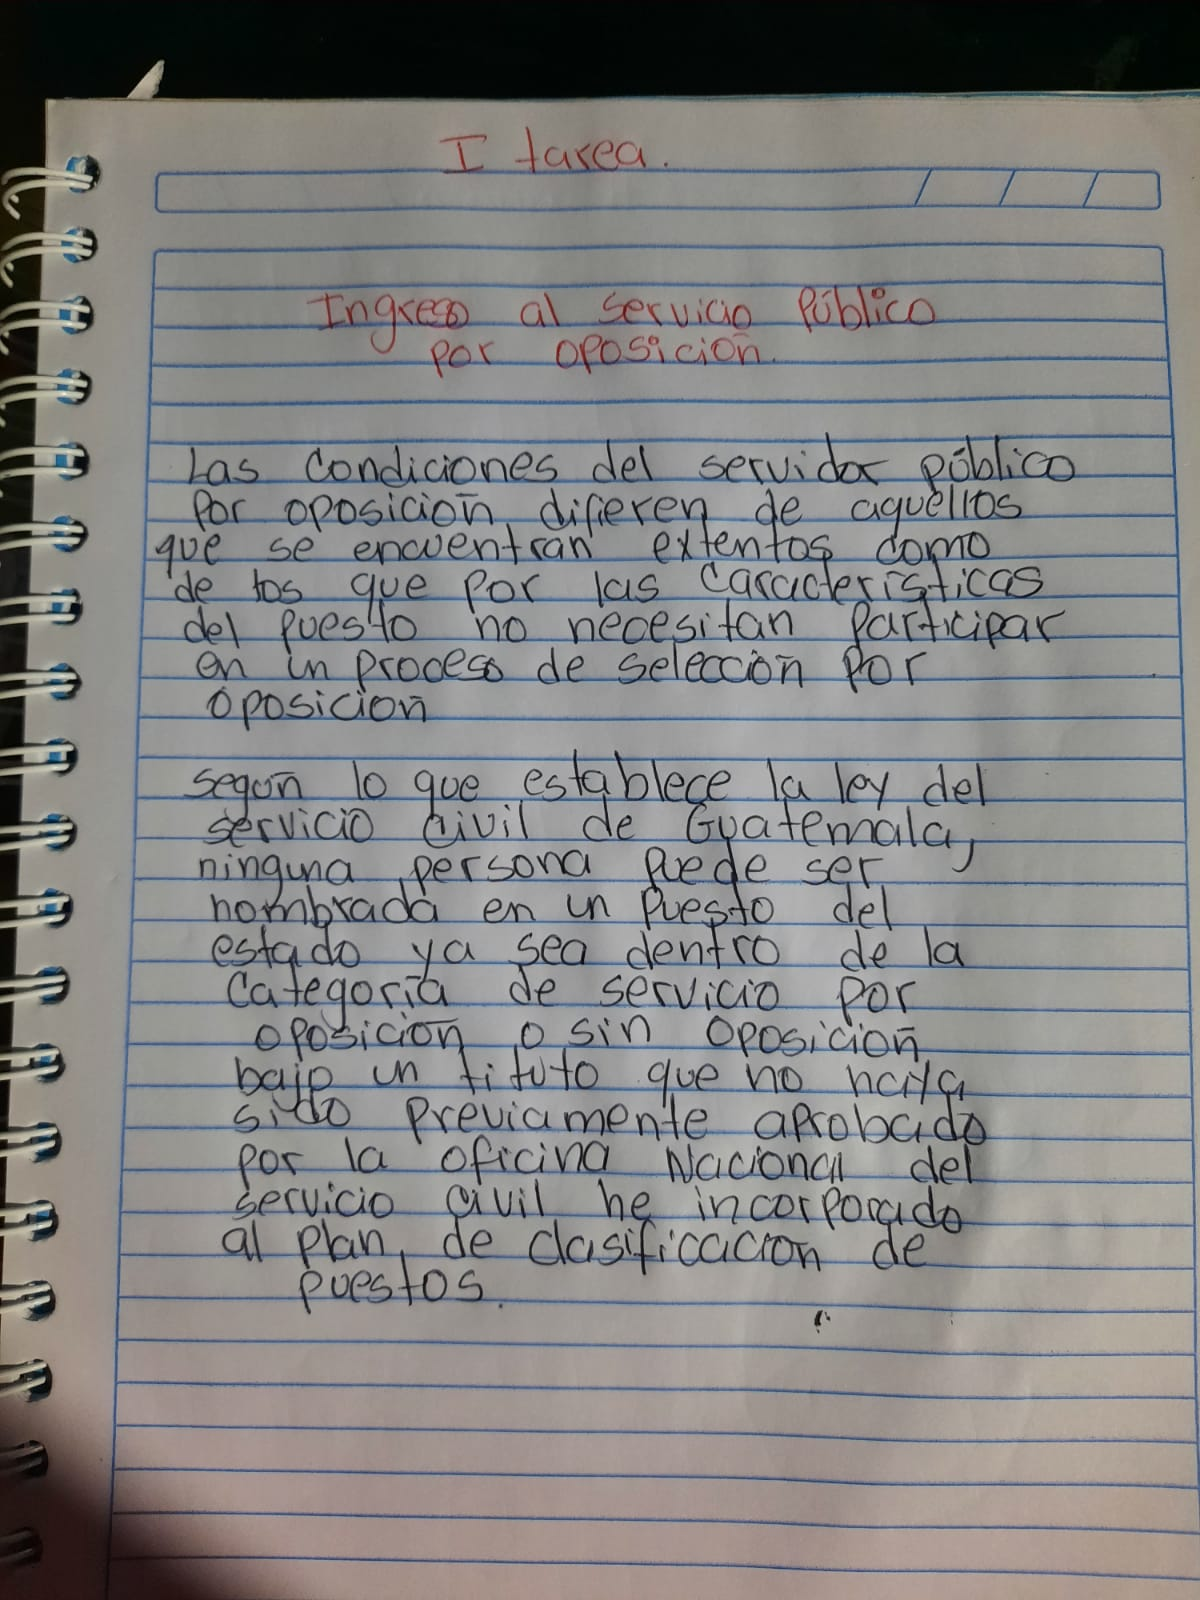 I tarea.
Ingreso al servicio Público
por oposición.
Las condiciones del servidor público
por oposición, difieren de aquellos
que se encuentran extentos como
de los que por las características
del puesto no necesitan participar
en un proceso de selección por
oposición
según lo que establece la ley del
servicio civil de Guatemala,
ninguna persona puede ser
nombrada en un puesto del
estado ya sea dentro de la
categoría de servicio por
oposición o sin oposición,
bajo un tituto que no haya
sido previamente aprobado
por la oficina Nacional del
servicio civil he incorporado
al plan, de clasificación de
puestos.